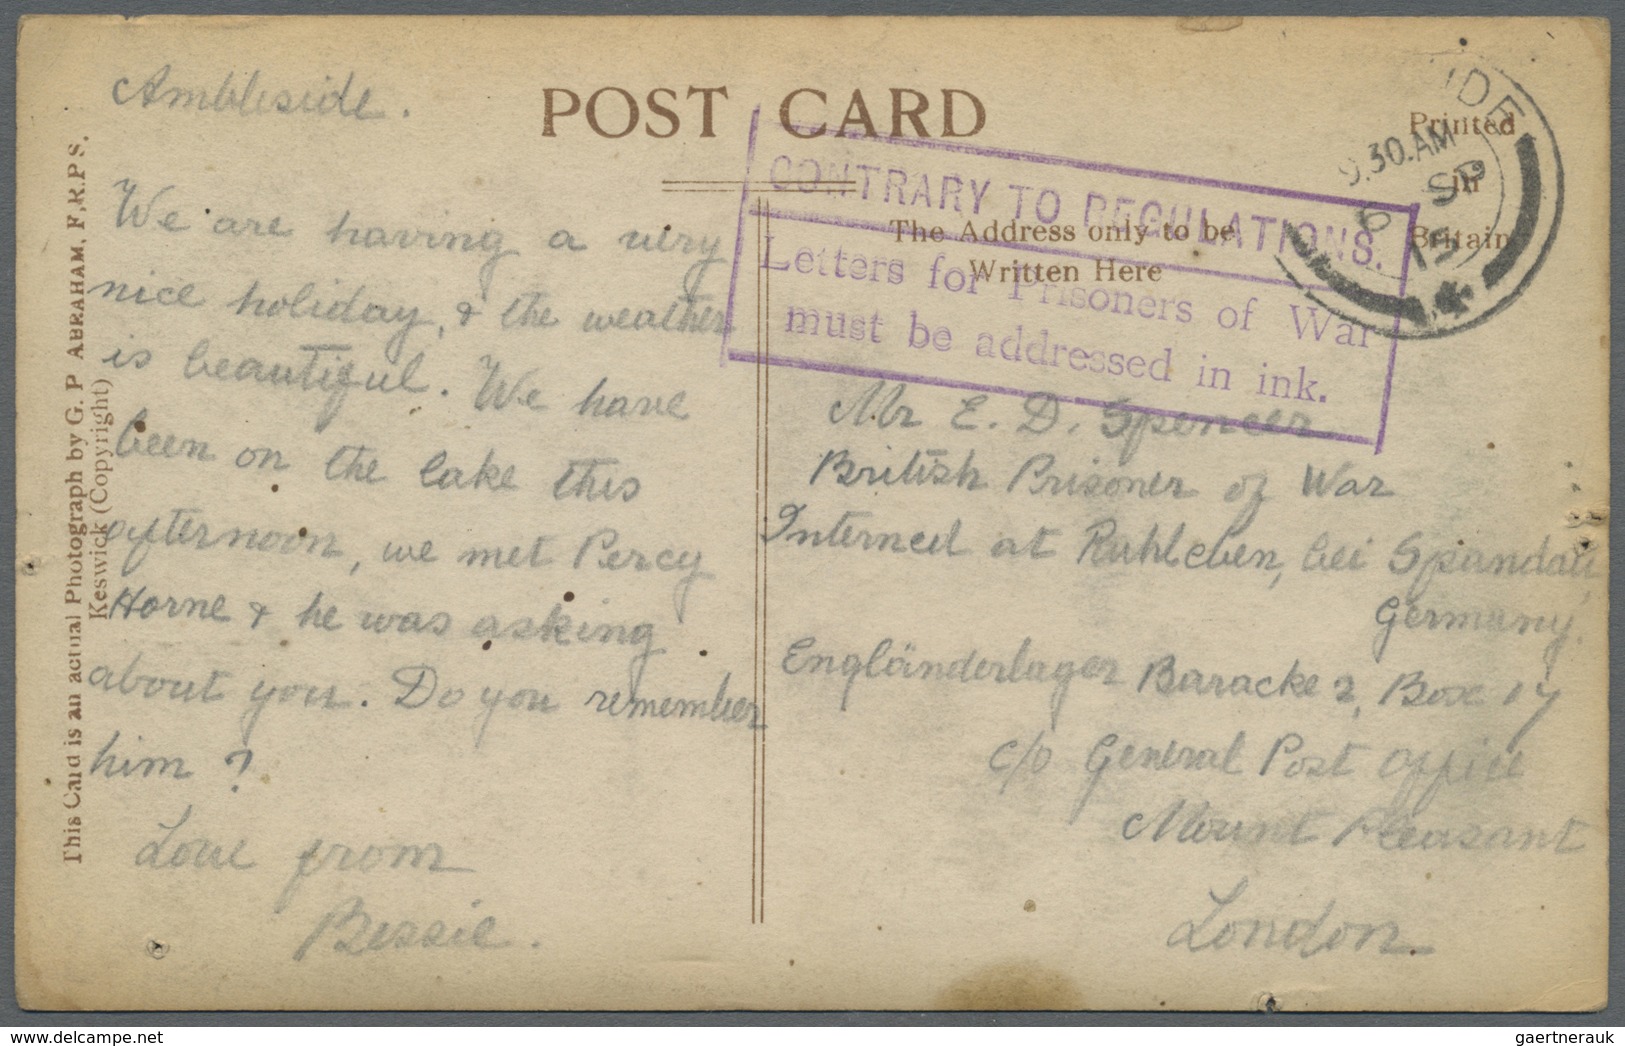 POST CARD
Printed
in
Britain
The Address only to be
Written Here
CONTRARY TO REGULATIONS.
Letters for Prisoners of War
must be addressed in ink.
9.30.AM
6 SP
15
This Card is an actual Photograph by G. P ABRAHAM, F.R.P S.
Keswick (Copyright)
Ambleside.
We are having a very
nice holiday, & the weather
is beautiful. We have
been on the lake this
afternoon, we met Percy
Horne & he was asking
about you. Do you remember
him ?
Love from
Bessie.
Mr E. D. Spencer
British Prisoner of War
Interned at Ruhleben, bei Spandau,
Germany.
Engländerlager Baracke 2, Box 17
c/o General Post Office
Mount Pleasant
London.
gaertnerauk
www.delcampe.net